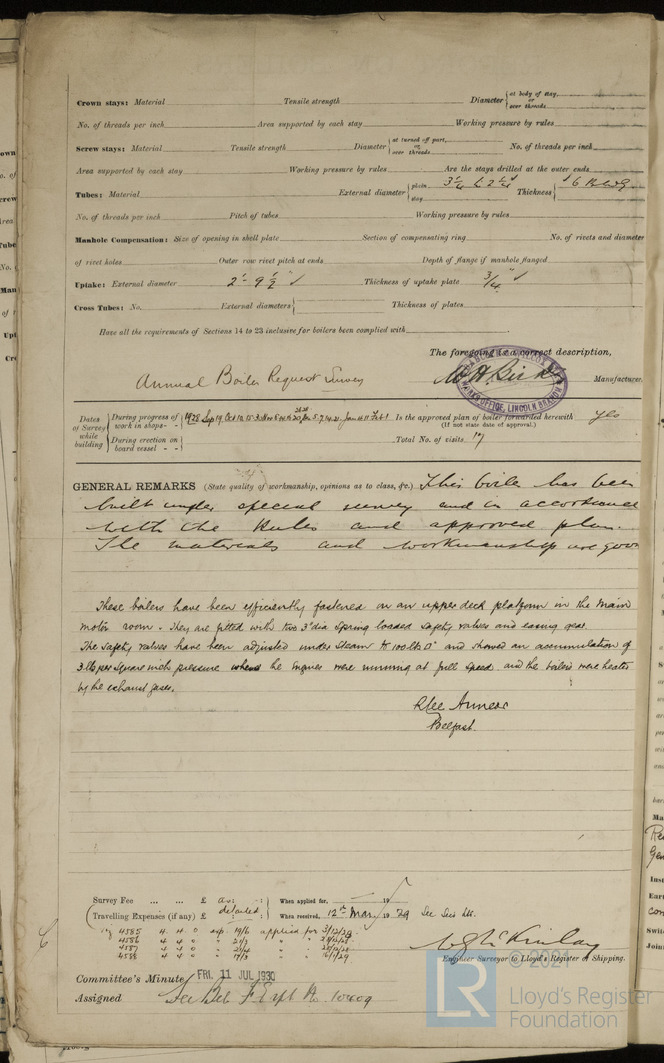 Crown stays: Material Tensile strength Diameter { at body of stay, or over threads
No. of threads per inch Area supported by each stay Working pressure by rules
Screw stays: Material Tensile strength Diameter { at turned off part, or over threads No. of threads per inch
Area supported by each stay Working pressure by rules Are the stays drilled at the outer ends
Tubes: Material External diameter { plain 3 1/4 & 2 1/4 stay Thickness { 6
No. of threads per inch Pitch of tubes Working pressure by rules
Manhole Compensation: Size of opening in shell plate Section of compensating ring No. of rivets and diameter
of rivet holes Outer row rivet pitch at ends Depth of flange if manhole flanged
Uptake: External diameter 2'- 9 1/2" Thickness of uptake plate 3/4"
Cross Tubes: No. External diameters { Thickness of plates
Have all the requirements of Sections 14 to 23 inclusive for boilers been complied with
The foregoing is a correct description,
Annual Boiler Request Survey Manufacturer.
WORKS OFFICE, LINCOLN BRANCH
Dates of Survey while building { During progress of work in shops - - 1928 Sep 19 Is the approved plan of boiler forwarded herewith yes
(If not state date of approval.)
During erection on board vessel - - Total No. of visits 17
GENERAL REMARKS (State quality of workmanship, opinions as to class, &c.) This boiler has been
built under special survey and in accordance
with the Rules and approved plan.
The materials and workmanship are good
These boilers have been efficiently fastened on an upper deck platform in the main
motor room. They are fitted with two 3" dia Spring loaded safety valves and easing gear.
The safety valves have been adjusted under steam to 100 lbs □" and showed an accumulation of
3 lbs per square inch pressure when the Engines were running at full speed and the boilers were heated
by the exhaust gases.
Belfast.
Survey Fee ... ... £ as: When applied for, 19
Travelling Expenses (if any) £ detailed When received, 12th Mar 1929
4585 4 4 0 19/6 applied for 3/12/28
4586 4 4 0 21/3
4587 4 4 0
4588 4 4 0 16/1/29
Engineer Surveyor to Lloyd's Register of Shipping.
Committee's Minute FRI. 11 JUL 1930
Assigned See Bel. F.E. Rpt No. 10409
© 2021
LR Lloyd's Register
Foundation